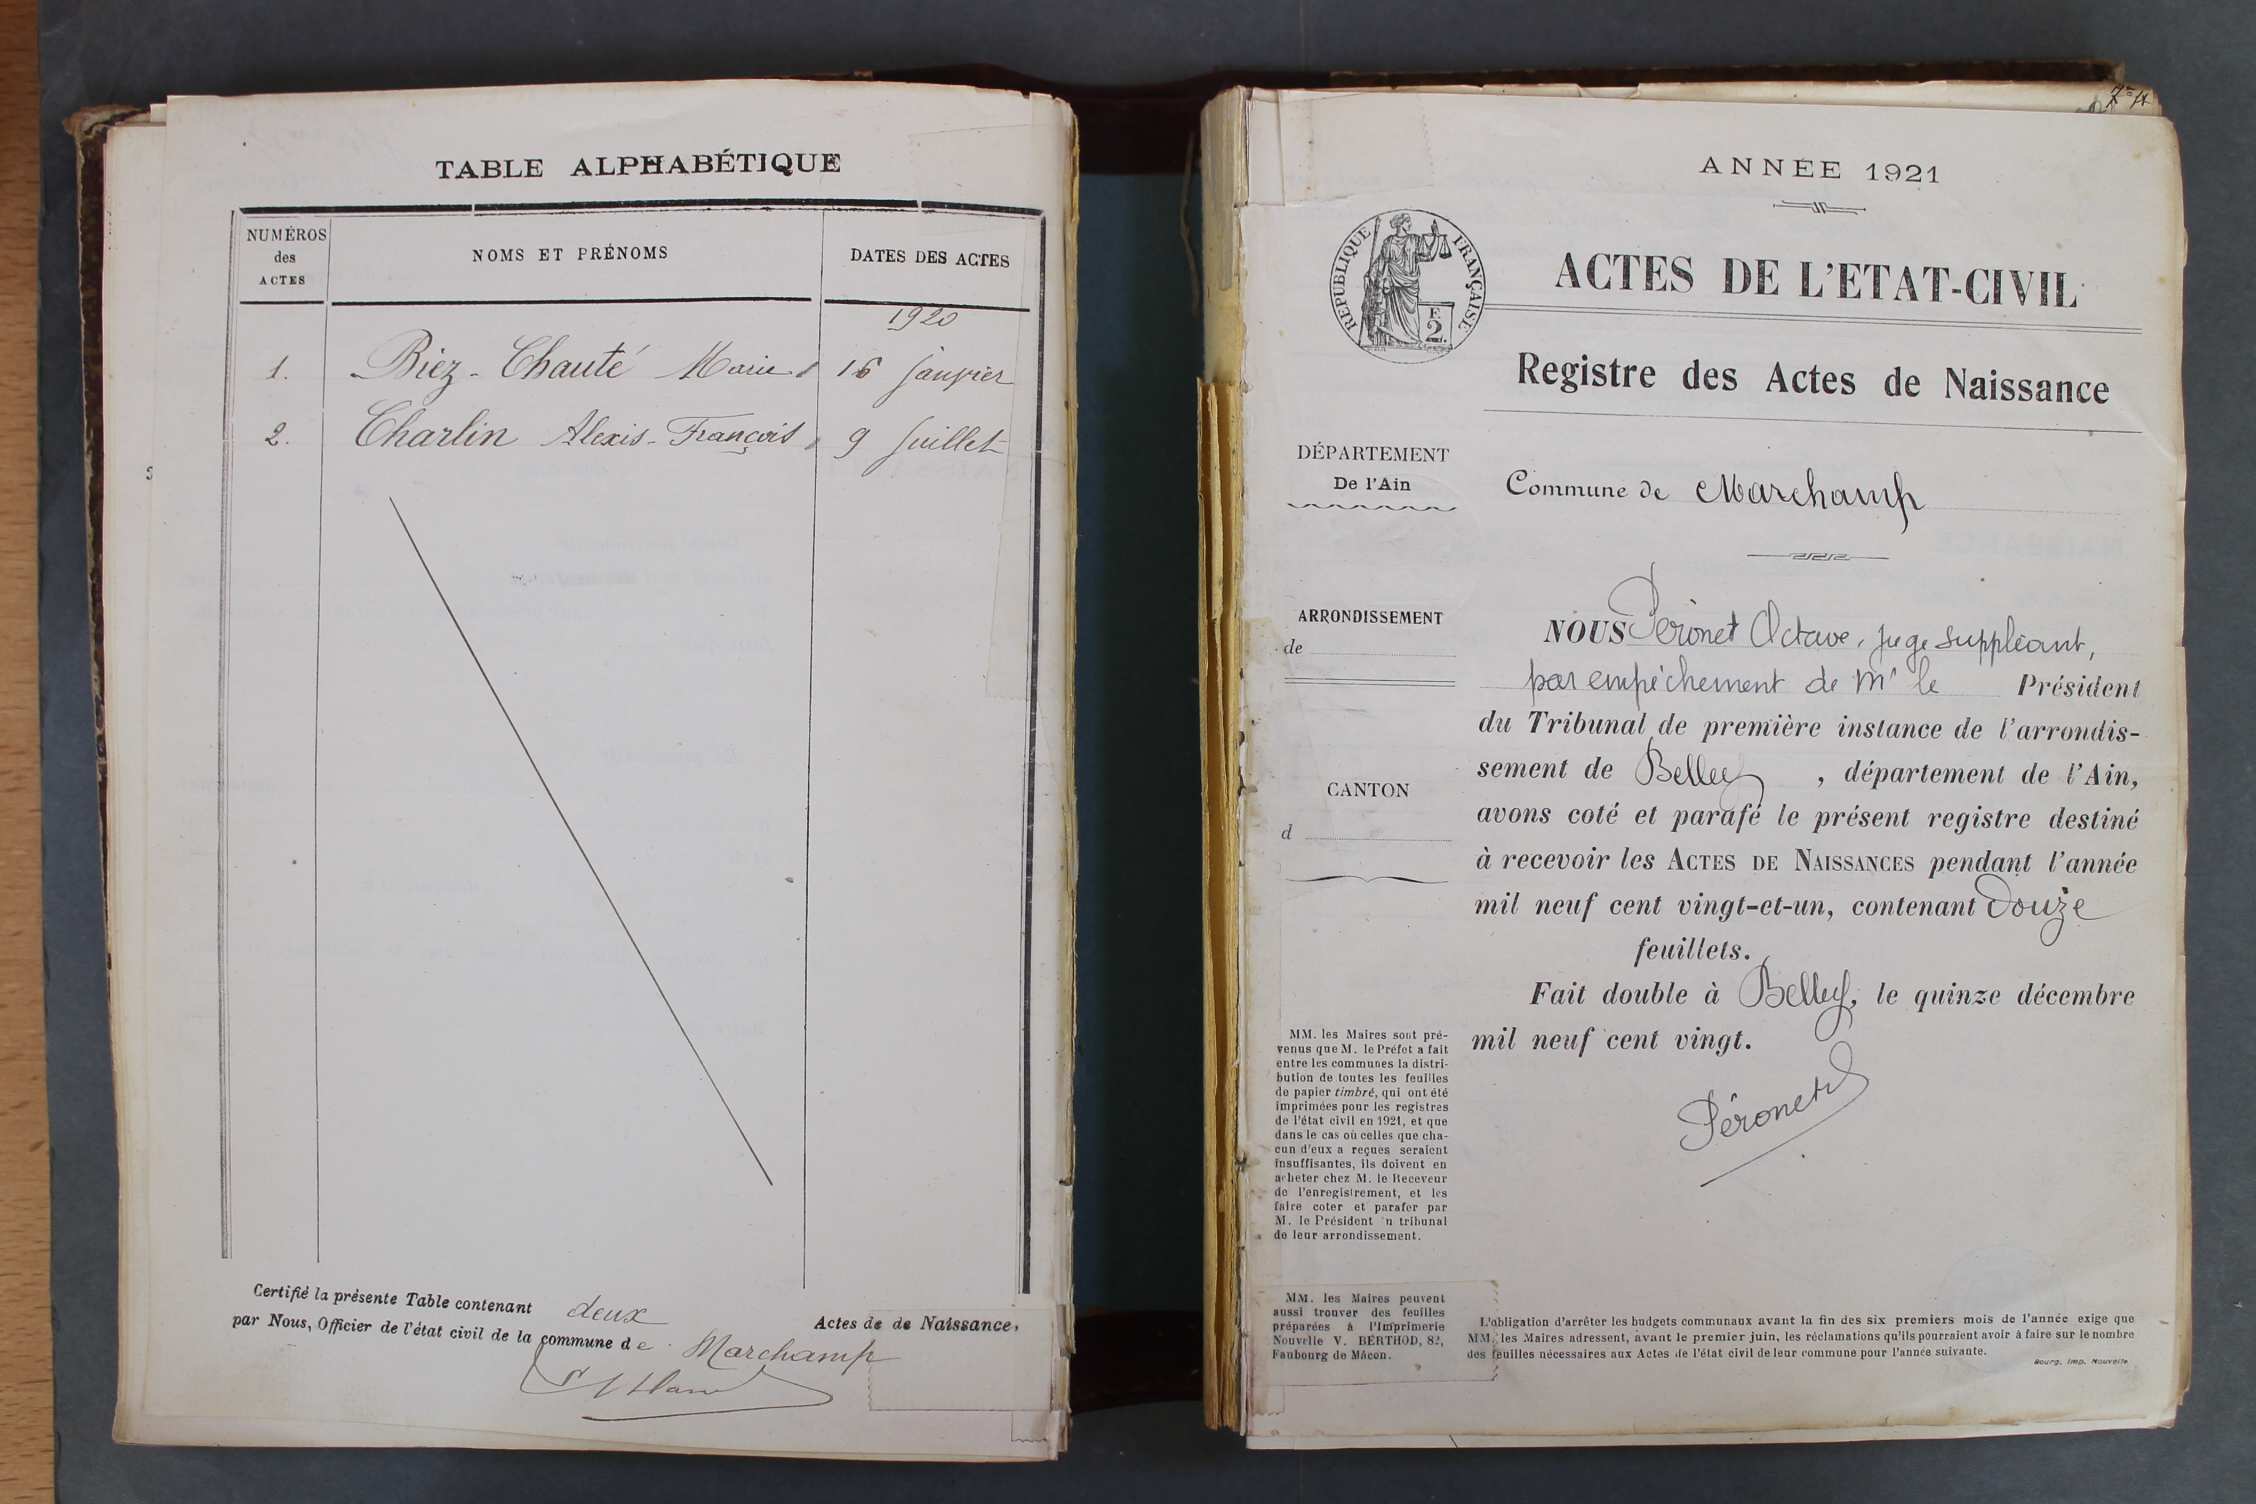 TABLE ALPHABÉTIQUE
NUMÉROS
des
ACTES
NOMS ET PRÉNOMS
DATES DES ACTES
1920
1. Biez-Chauté Marie 16 janvier
2. Charlin Alexis-François 9 juillet
Certifié la présente Table contenant deux Actes de de Naissance,
par Nous, Officier de l'état civil de la commune de Marchamp
ANNÉE 1921
RÉPUBLIQUE FRANÇAISE
F.
2.
ACTES DE L'ETAT-CIVIL
Registre des Actes de Naissance
DÉPARTEMENT
De l'Ain
Commune de Marchamp
ARRONDISSEMENT
de
CANTON
d
NOUS Péronet Octave, juge suppléant,
par empêchement de Mr le Président
du Tribunal de première instance de l'arrondis-
sement de Belley, département de l'Ain,
avons coté et parafé le présent registre destiné
à recevoir les ACTES DE NAISSANCES pendant l'année
mil neuf cent vingt-et-un, contenant Douze
feuillets.
Fait double à Belley, le quinze décembre
mil neuf cent vingt.
Péronet
MM. les Maires sont pré-
venus que M. le Préfet a fait
entre les communes la distri-
bution de toutes les feuilles
de papier timbré, qui ont été
imprimées pour les registres
de l'état civil en 1921, et que
dans le cas où celles que cha-
cun d'eux a reçues seraient
insuffisantes, ils doivent en
acheter chez M. le Receveur
de l'enregistrement, et les
faire coter et parafer par
M. le Président n tribunal
de leur arrondissement.
MM. les Maires peuvent
aussi trouver des feuilles
préparées à l'Imprimerie
Nouvelle V. BERTHOD, 82,
Faubourg de Mâcon.
L'obligation d'arrêter les budgets communaux avant la fin des six premiers mois de l'année exige que
MM. les Maires adressent, avant le premier juin, les réclamations qu'ils pourraient avoir à faire sur le nombre
des feuilles nécessaires aux Actes de l'état civil de leur commune pour l'année suivante.
Bourg. Imp. Nouvelle